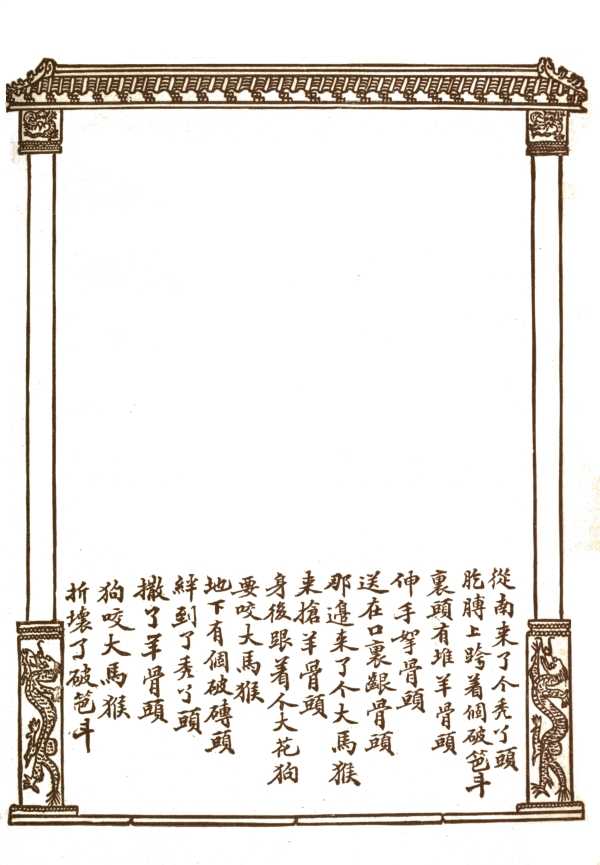 從南来了个秃丫頭
肐膊上跨着個破笆斗
裏頭有堆羊骨頭
伸手拏骨頭
送在口裏齦骨頭
那邉来了个大馬猴
来搶羊骨頭
身後跟着个大花狗
要咬大馬猴
地下有個破磚頭
絆到了秃丫頭
撒了羊骨頭
狗咬大馬猴
折壊了破笆斗